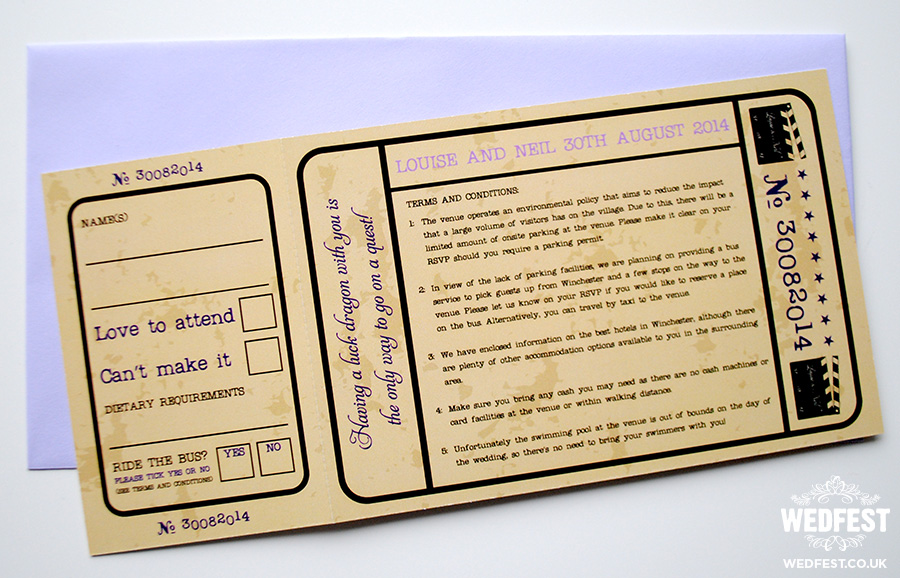 № 30082014
NAME(S)
Love to attend
Can't make it
DIETARY REQUIREMENTS
RIDE THE BUS?
PLEASE TICK YES OR NO
(SEE TERMS AND CONDITIONS)
YES
NO
№ 30082014
Having a luck dragon with you is
the only way to go on a quest!
LOUISE AND NEIL 30TH AUGUST 2014
TERMS AND CONDITIONS:
1: The venue operates an environmental policy that aims to reduce the impact
that a large volume of visitors has on the village. Due to this, there will be a
limited amount of onsite parking at the venue. Please make it clear on your
RSVP should you require a parking permit.
2: In view of the lack of parking facilities, we are planning on providing a bus
service to pick guests up from Winchester and a few stops on the way to the
venue. Please let us know on your RSVP if you would like to reserve a place
on the bus. Alternatively, you can travel by taxi to the venue.
3: We have enclosed information on the best hotels in Winchester, although there
are plenty of other accommodation options available to you in the surrounding
area.
4: Make sure you bring any cash you may need as there are no cash machines or
card facilities at the venue or within walking distance.
5: Unfortunately the swimming pool at the venue is out of bounds on the day of
the wedding, so there's no need to bring your swimmers with you!
№ 30082014
WEDFEST
WEDFEST.CO.UK